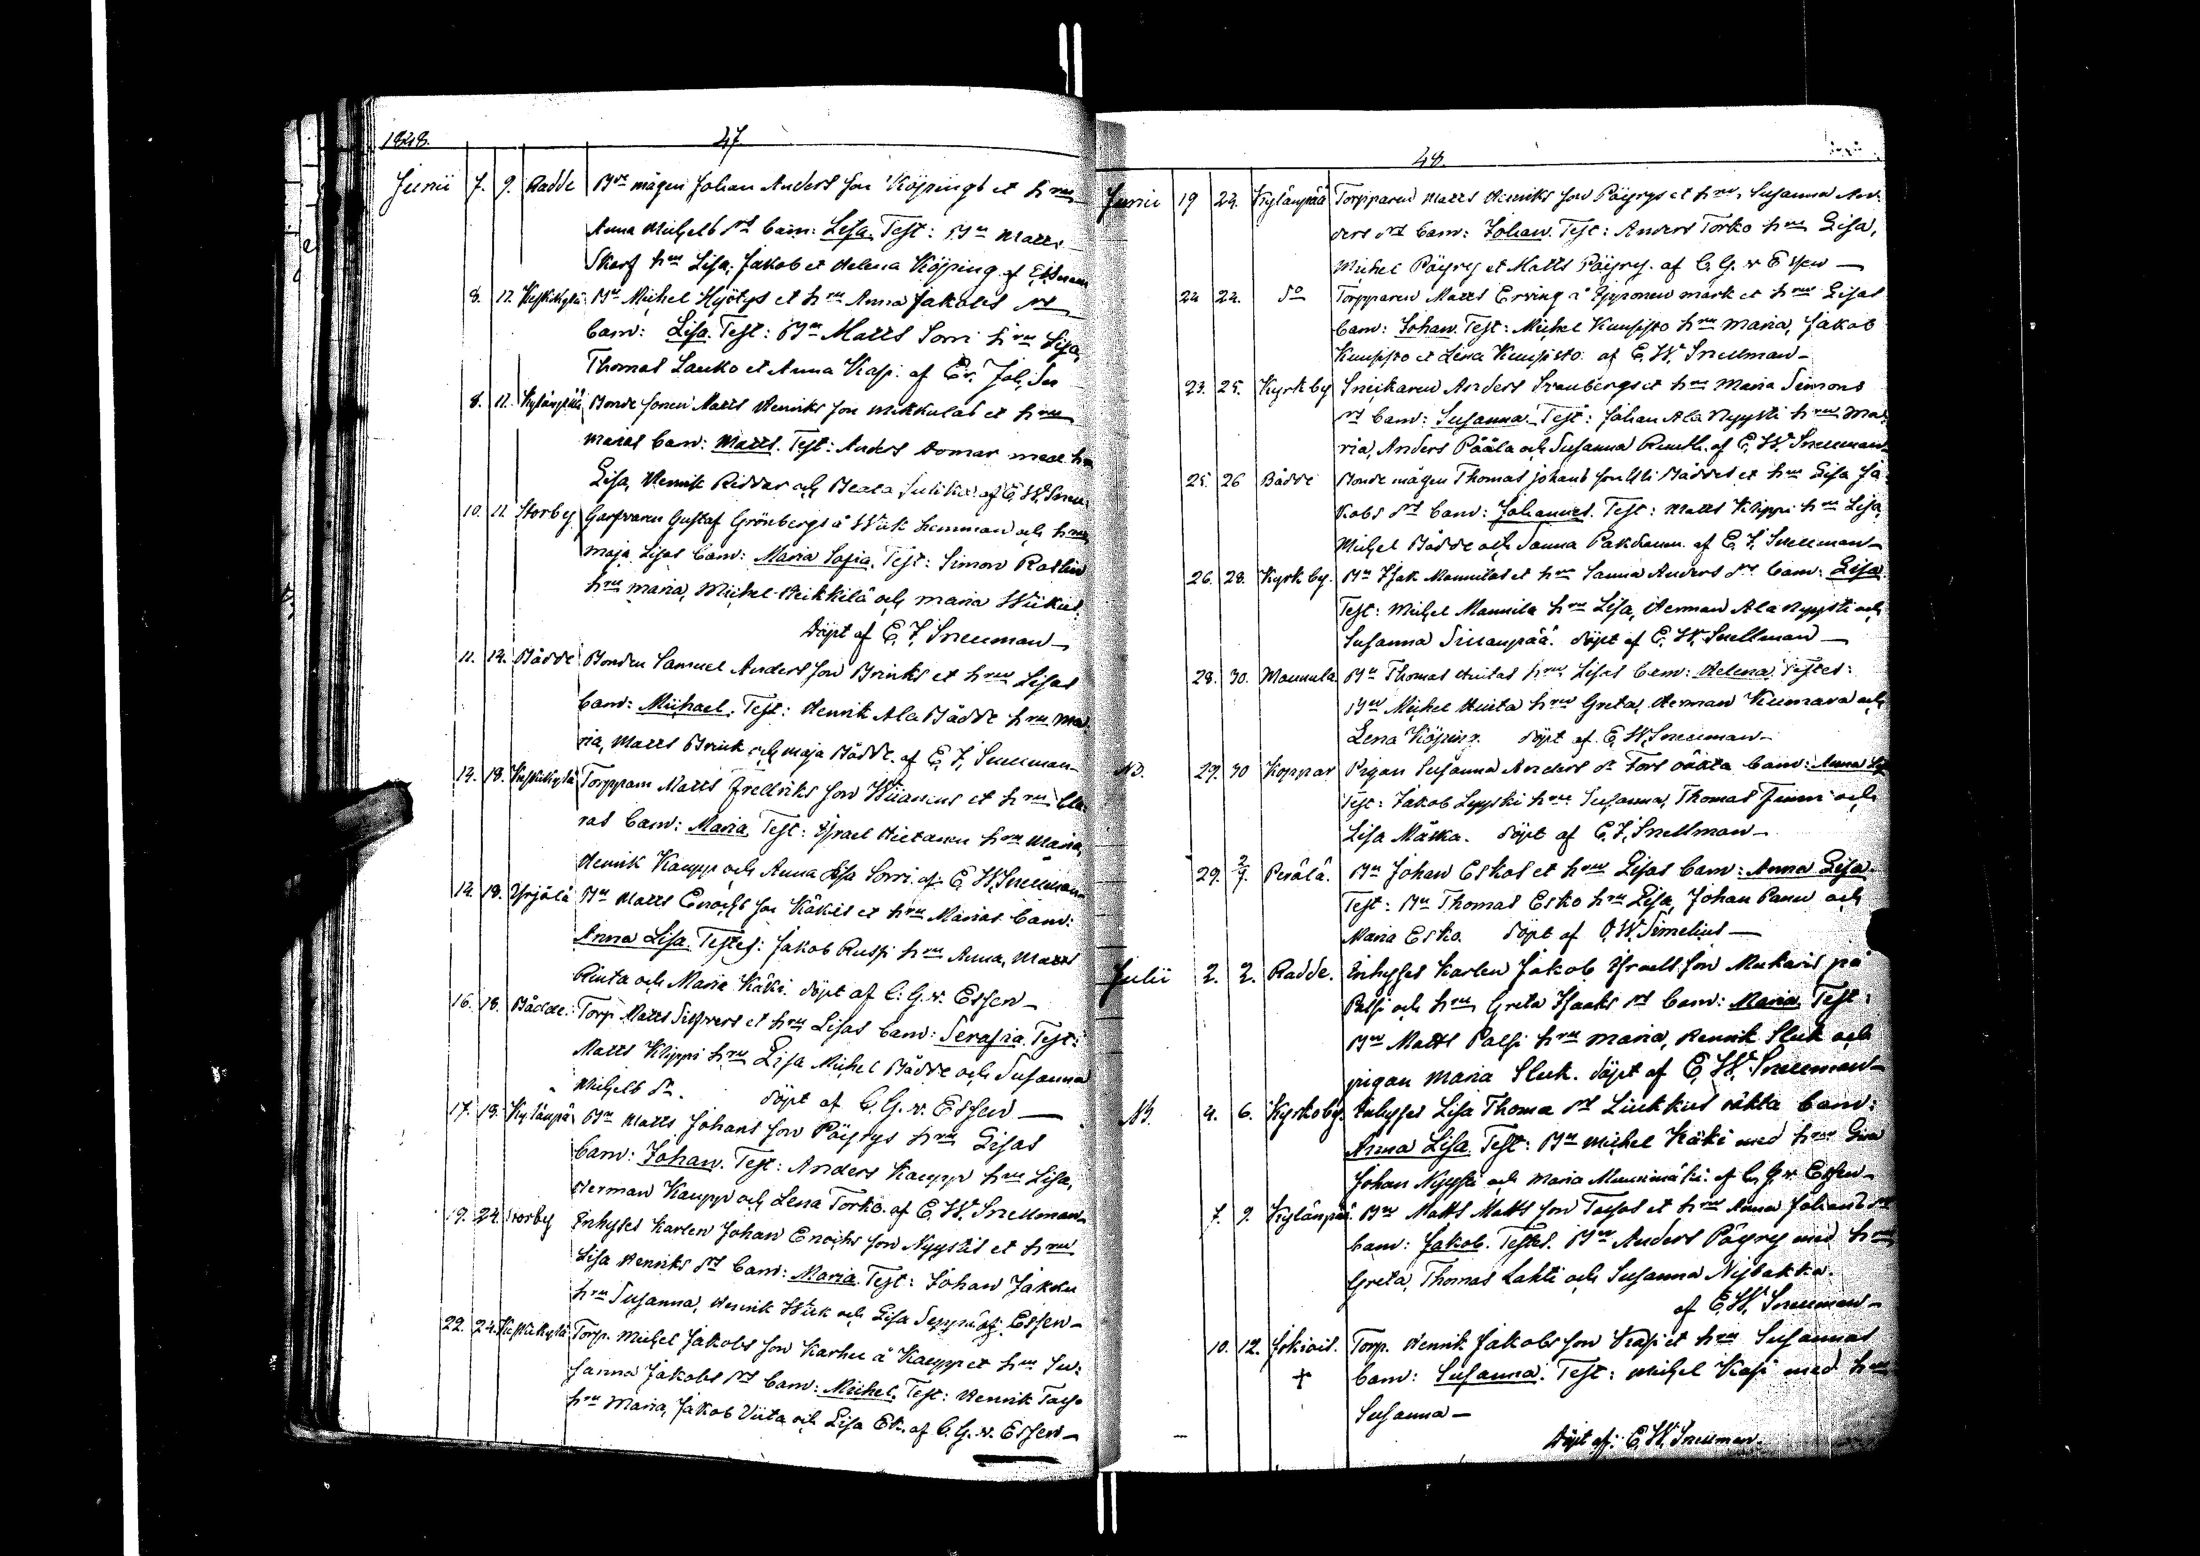 1848.
47
Junii 7. 9. Radde Bde mågen Johan Anders son Köpings et hru
Anna Michels dr barn: Lisa. Test: Bn Matts
Skarf hru Lisa, Jakob et Helena Köping. af
8. 12 Keskikylä Bn Michel Hyötys et hru Anna Jakobs dr
barn: Lisa. Test: Bn Matts Sorri hru Lisa,
Thomas Lauko et Anna Kasi. af
8. 11. Kylänpää Bonde sonen Matts Henriks son Mikkulas et hru
Marias barn: Matts. Test: Anders Domar med hru
Lisa, Henrik Riddar och Beata af E. W. Snell.
10. 11 Storby Garfvaren Gustaf Grönbergs å Wiik hemman och hru
Maja Lisas barn: Maria Sofia. Test: Simon Roslin
hru Maria, Michel Heikkilä och Maria Wiikus.
Döpt af E. F. Snellman
11. 14. Bådde Bonden Samuel Anders son Brinks et hru Lisas
barn: Michael. Test: Henrik Ala Bådde hru Ma-
ria, Matts Brink och Maja Bådde. af E. F. Snellman
14. 18. Keskikylä Torpparn Matts Fredriks son et hru Cla-
ras barn: Maria. Test: Israel Hietanen hru Maria,
Henrik Kaupp och Anna Lisa Sorri. af E. W. Snellman
14. 18. Yrjälä Bn Matts Enochs son Käkis et hru Marias barn:
Anna Lisa. Testes: Jakob Ruspi hru Anna, Matts
Rinta och Maria Käki. döpt af C. G. v. Essen
16. 18. Bådde. Torp. Matts Silfvers et hru Lisas barn: Serafia. Test:
Matts Klippi hru Lisa Michel Bådde och Susanna
Michels dr. döpt af C. G. v. Essen
17. 18. Kylänpä Bn Matts Johans son Pöyrys hru Lisas
barn: Johan. Test: Anders Kaupp hru Lisa,
Herman Kaupp och Lena Torko. af E. W. Snellman
19. 24. Storby Inhyses karlen Johan Enochs son Nyystis et hru
Lisa Henriks dr barn: Maria. Test: Johan
hru Susanna, Henrik Wiik och Lisa Seppä af Essen
22. 24. Keskikylä Torp. Michel Jakobs son Karhu å Kaupp et hru Su-
sanna Jakobs dr barn: Michel. Test: Henrik
hru Maria, Jakob Viita och Lisa Ek. af C. G. v. Essen
48.
Junii 19 24. Kylänpää Torpparen Matts Henriks son Pöyrys et hru Susanna An-
ders dr barn: Johan. Test: Anders Torko hru Lisa,
Michel Pöyry et Matts Pöyry. af C. G. v Essen
22 24. do Torpparen Matts Erving å mark et hru Lisas
barn: Johan. Test: Michel Kuusisto hru Maria, Jakob
Kuusisto et Lena Kuusisto. af E. W. Snellman
23. 25. Kyrkby Snickaren Anders et hru Maria Simons
dr barn: Susanna. Test: Johan Ala Nyysti hru Ma-
ria, Anders Pääla och Susanna af E. W. Snellman
25. 26 Bådde Bonde mågen Thomas Johans son Bådde et hru Lisa Ja-
kobs dr barn: Johannes. Test: Matts Klippi hru Lisa,
Michel Bådde och Sanna af E. F. Snellman
26. 28. Kyrkby. Bn Isak Mannilas et hru Sanna Anders dr barn: Lisa
Test: Michel Mannila hru Lisa, Herman Ala Nyysti och
Susanna döpt af E. W. Snellman
28. 30. Mannula Bn Thomas hru Lisas barn: Helena. Testes:
Bn Michel hru Greta, Herman och
Lena Köping. döpt af E. W. Snellman
NB. 29. 30 Koppar Pigan Susanna Anders dr Fors oäkta barn: Anna
Test: Jakob Lyyski hru Susanna, Thomas Finni och
Lisa Måska. döpt af E. F. Snellman
29. 2/7. Perälä. Bn Johan Eskos et hru Lisas barn: Anna Lisa.
Test: Bn Thomas Esko hru Lisa, Johan och
Maria Esko. döpt af O. W. Simelius
Julii 2. 2. Radde. Inhyses karlen Jakob Israels son på
Palsi och hru Greta Isaaks dr barn: Maria. Test:
Bn Matts Palsi hru Maria, Henrik Sluk och
pigan Maria Sluk. döpt af E. W. Snellman
NB. 4. 6. Kyrkoby. Inhyses Lisa Thomas dr oäkta barn:
Anna Lisa. Test: Bn Michel Käki med hru
Johan Nyysti och Maria af C. G. v. Essen
7. 9. Kylänpää. Bn Matts Matts son et hru Anna Johans dr
barn: Jakob. Testes. Bn Anders Pöyry med hru
Greta, Thomas Lahti och Susanna
af E. W. Snellman
10. 12. Jokiois. Torp. Henrik Jakobs son Kasi et hru Susannas
✝ barn: Susanna. Test: Michel Kasi med hru
Susanna
Döpt af: E. W. Snellman.